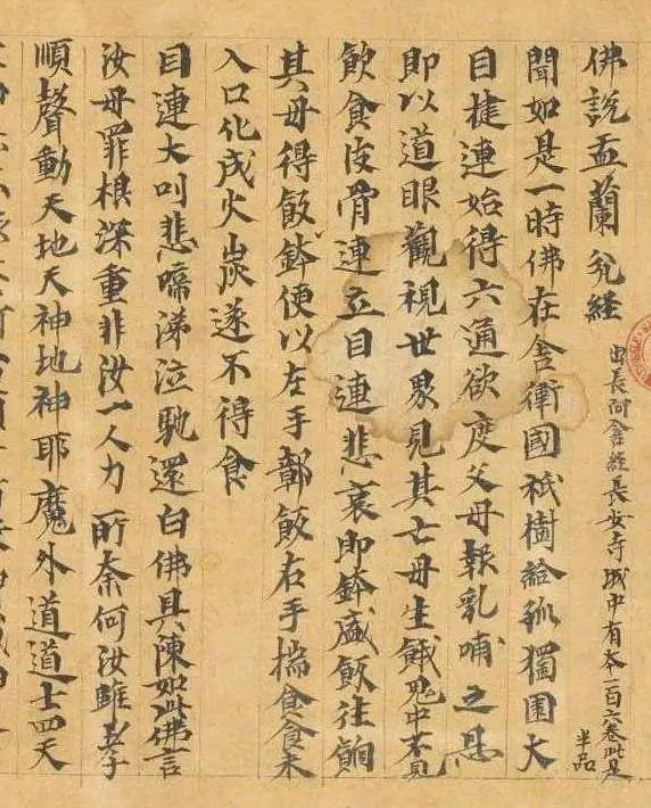 佛說盂蘭瓫経
出長阿含経長安寺城中有夲一百六卷此是
半品
聞如是一時佛在舎衛國祇樹給孤獨園大
目揵連始得六通欲度父母報乳哺之恩
即以道眼觀視世界見其亡母生餓鬼中不見
飲食皮骨連立目連悲哀即鉢盛飯往餉
其母得飯鉢便以左手鄣飯右手揣食食未
入口化成火炭遂不得食
目連大叫悲啼涕泣馳還白佛具陳如此佛言
汝母罪根深重非汝一人力所奈何汝雖孝
順聲動天地天神地神耶魔外道道士四天